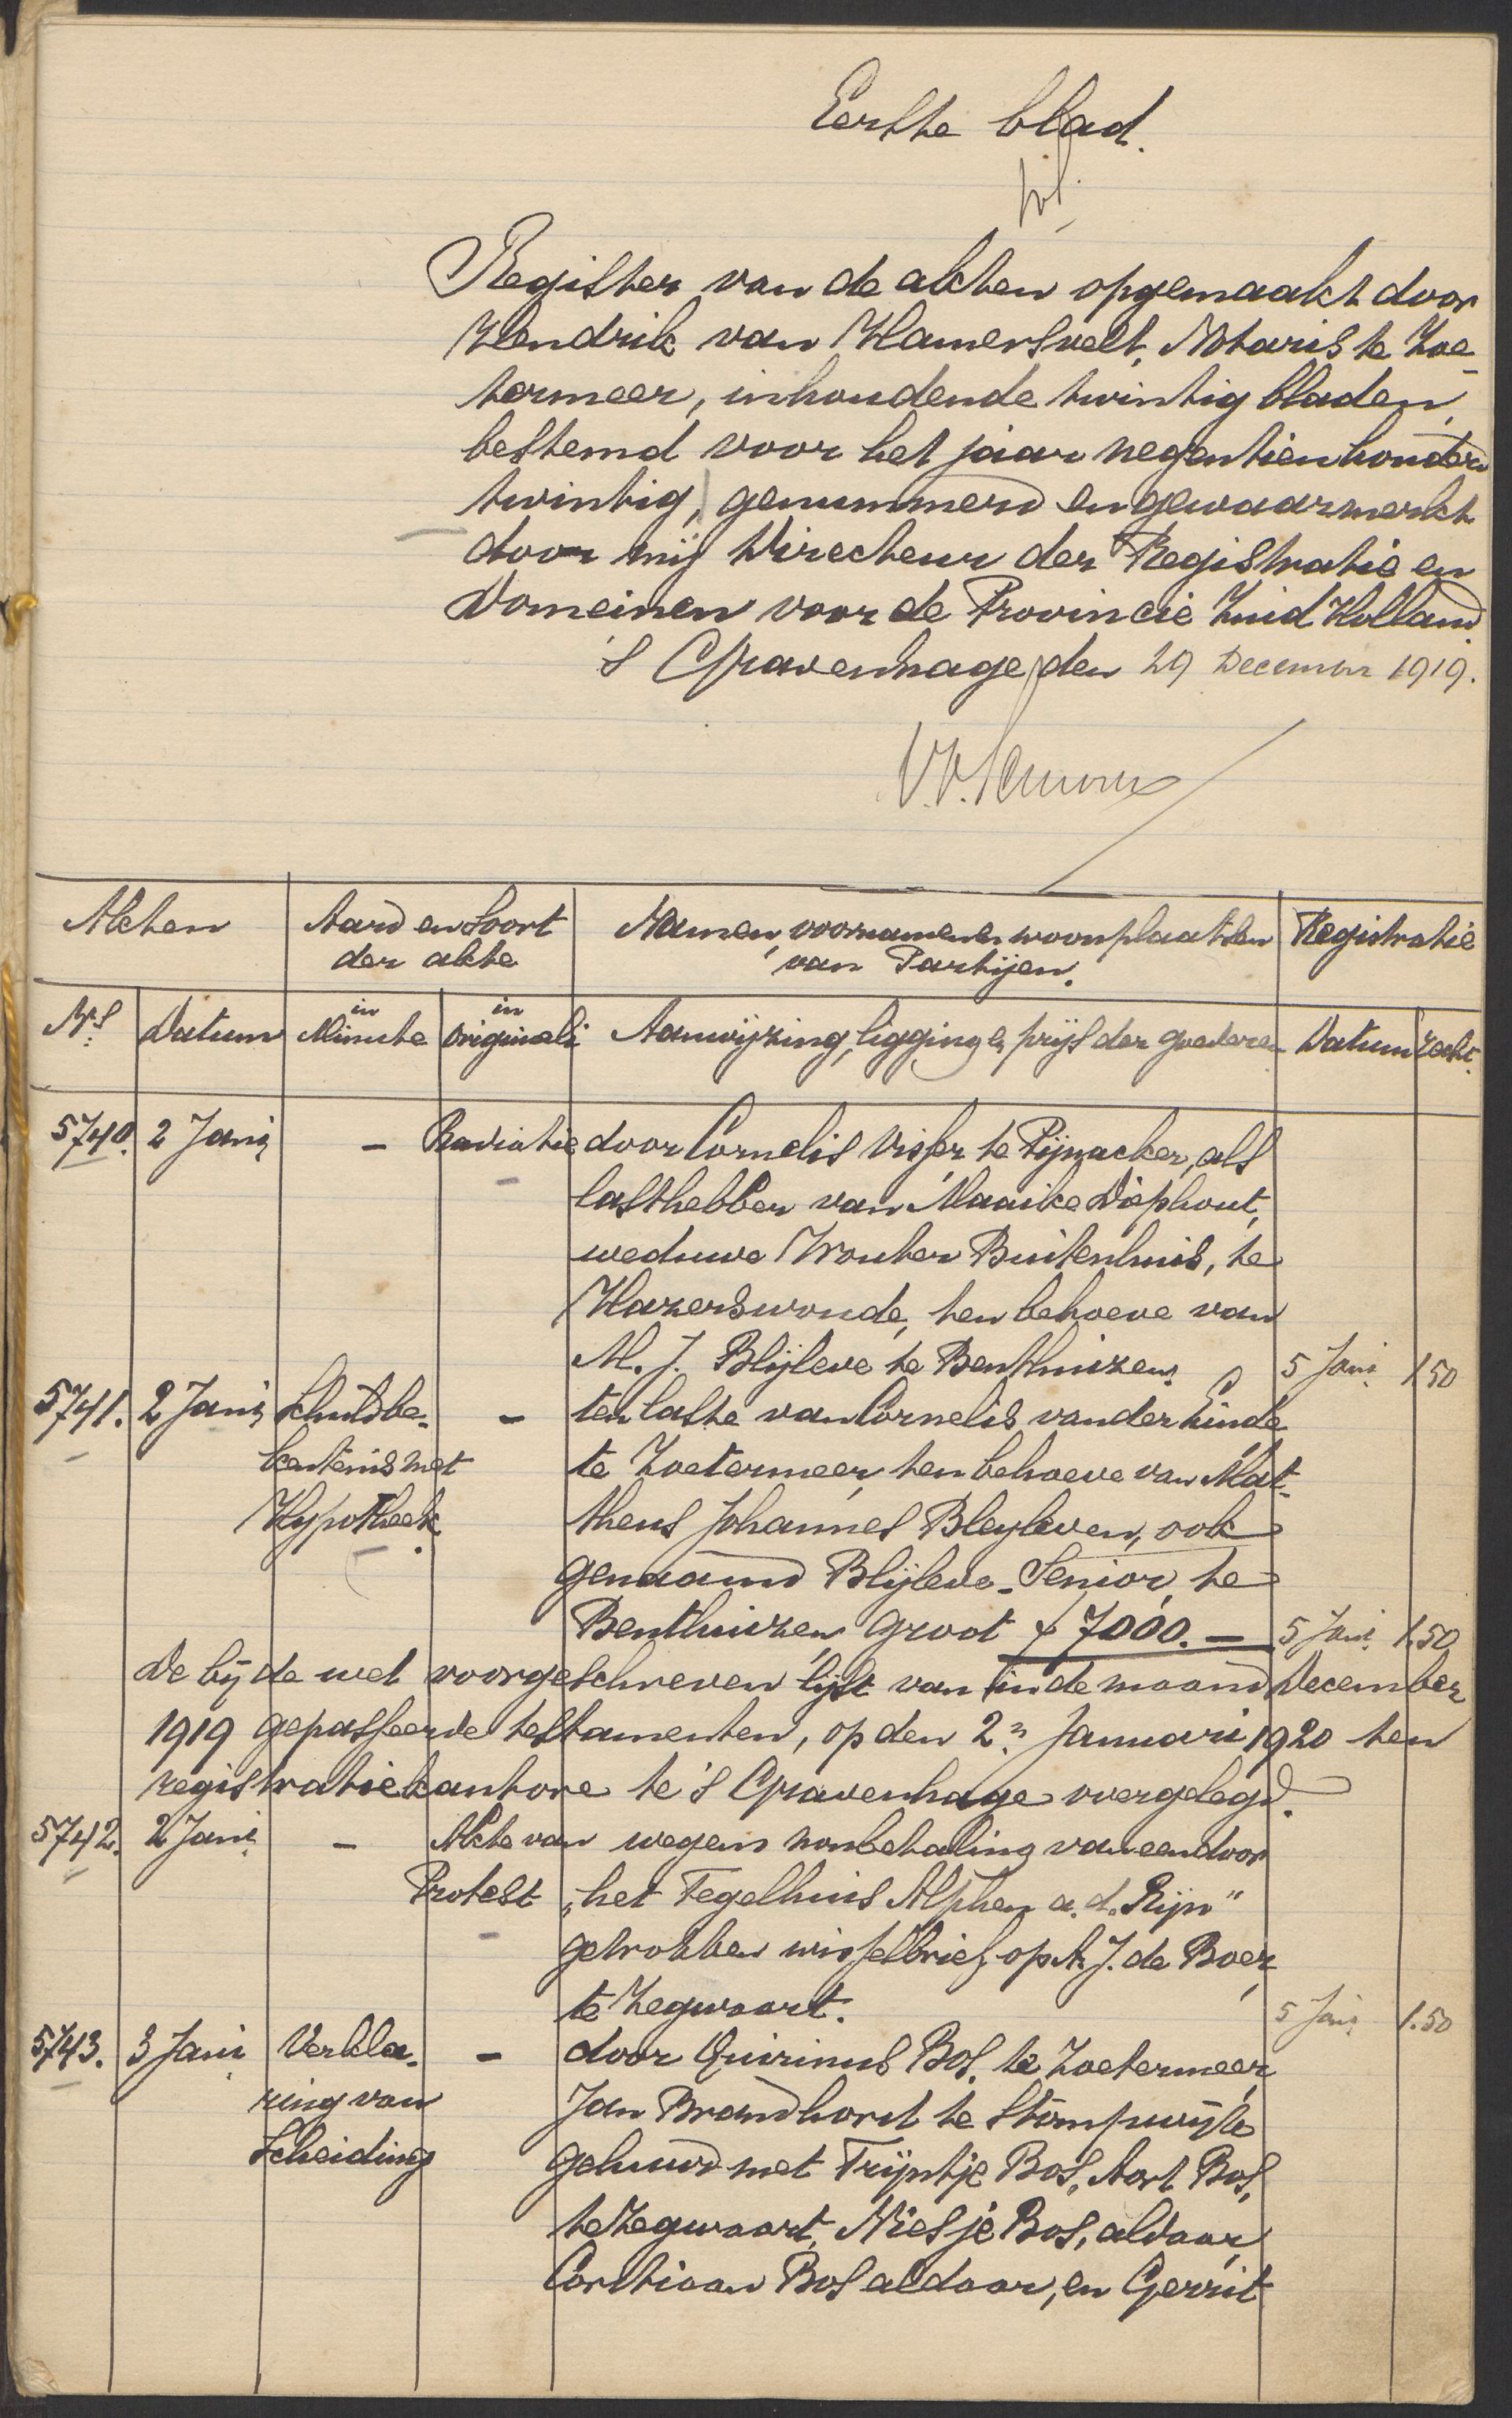 Eerste blad.
Register van de akten opgemaakt door
Hendrik van Hamersvelt, Notaris te Zoe-
termeer, inhoudende twintig bladen,
bestemd voor het jaar negentienhonderd
twintig, genummerd en gewaarmerkt
door mij Directeur der Registratie en
Domeinen voor de Provincie Zuid Holland.
's Gravenhage, den 29 December 1919.
Akten Aard en Soort Namen, voornamen en woonplaatsen Registratie
der akte van Partijen.
Nos Datum in Minute in Originali Aanwijzing, ligging en prijs der goederen Datum recht.
5740. 2 Jani - Radiatie door Cornelis Visser te Pijnacker, als
lasthebber van Maaike Diephout,
weduwe Wouter Buitenhuis, te
Hazerswoude, ten behoeve van
M. J. Blijleve te Benthuizen. 5 Jani 1.50
5741. 2 Jani Schuldbe- - ten laste van Cornelis van der Einde
kentenis met te Zoetermeer, ten behoeve van Mat-
Hypotheek. theus Johannes Bleyleven, ook
genaamd Blijleve-Senior, te
Benthuizen, groot f 7000.- 5 Jani 1.50
De bij de wet voorgeschreven lijst van in de maand December
1919 gepasseerde testamenten, op den 2n Januari 1920 ten
registratiekantore te 's Gravenhage overgelegd.
5742. 2 Jani - Akte van wegens nonbetaling van een door
Protest "het Tegelhuis Alphen a.d. Rijn"
getrokken wisselbrief, op A. J. de Boer
te Zegwaart. 5 Jani 1.50
5743. 3 Jani Verkla- - door Quirinus Bos, te Zoetermeer,
ring van Jan Brandhorst te Stompwijk
Scheiding gehuwd met Trijntje Bos, Aart Bos,
te Zegwaart, Niesje Bos, aldaar,
Corstiaan Bos aldaar, en Gerrit